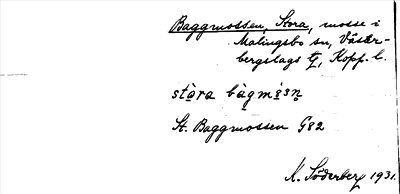 Baggmossen, Stora, mosse i
Malingsbo sn, Väster-
bergslags tg, Kopp. l.
stàra bàgmȯsn̥
St. Baggmossen G82
K. Söderberg 1931.